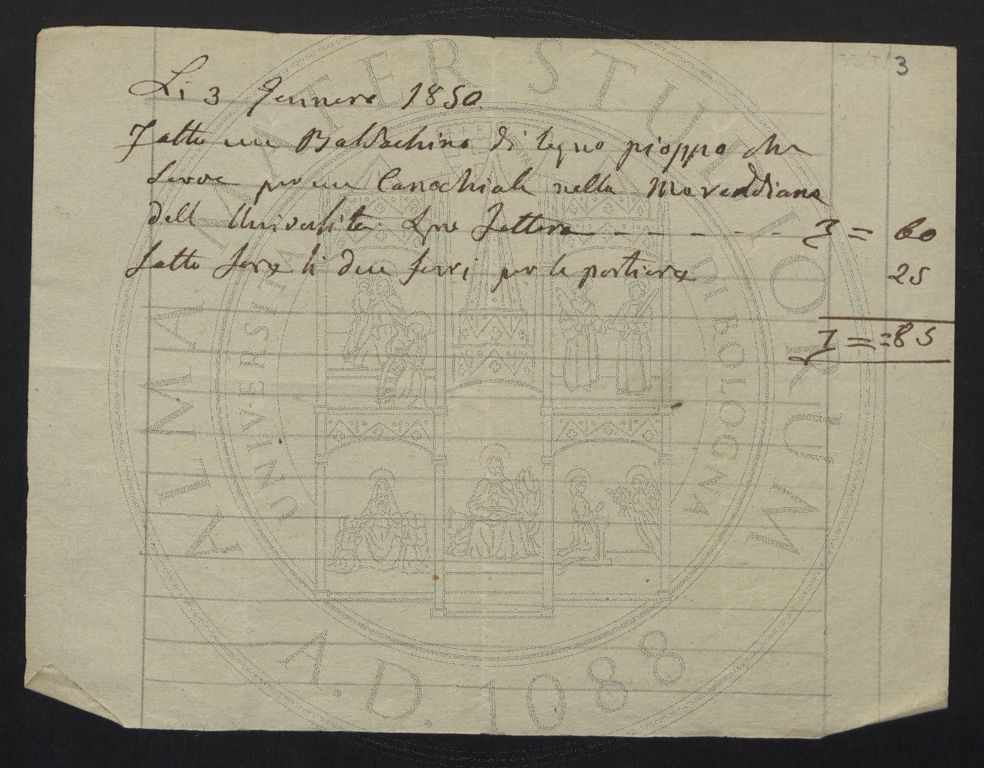 3
Li 3 Gennero 1850.
Fatto un Baldachino di legno pioppo che
serve per un Canochiale nella Mereddiana
dell Università
Fattura - - - - - - = 60
fatto fare li due ferri per le portiere 25
= = 85
ALMA MATER STUDIORUM
UNIVERSITÀ DI BOLOGNA
A.D. 1088